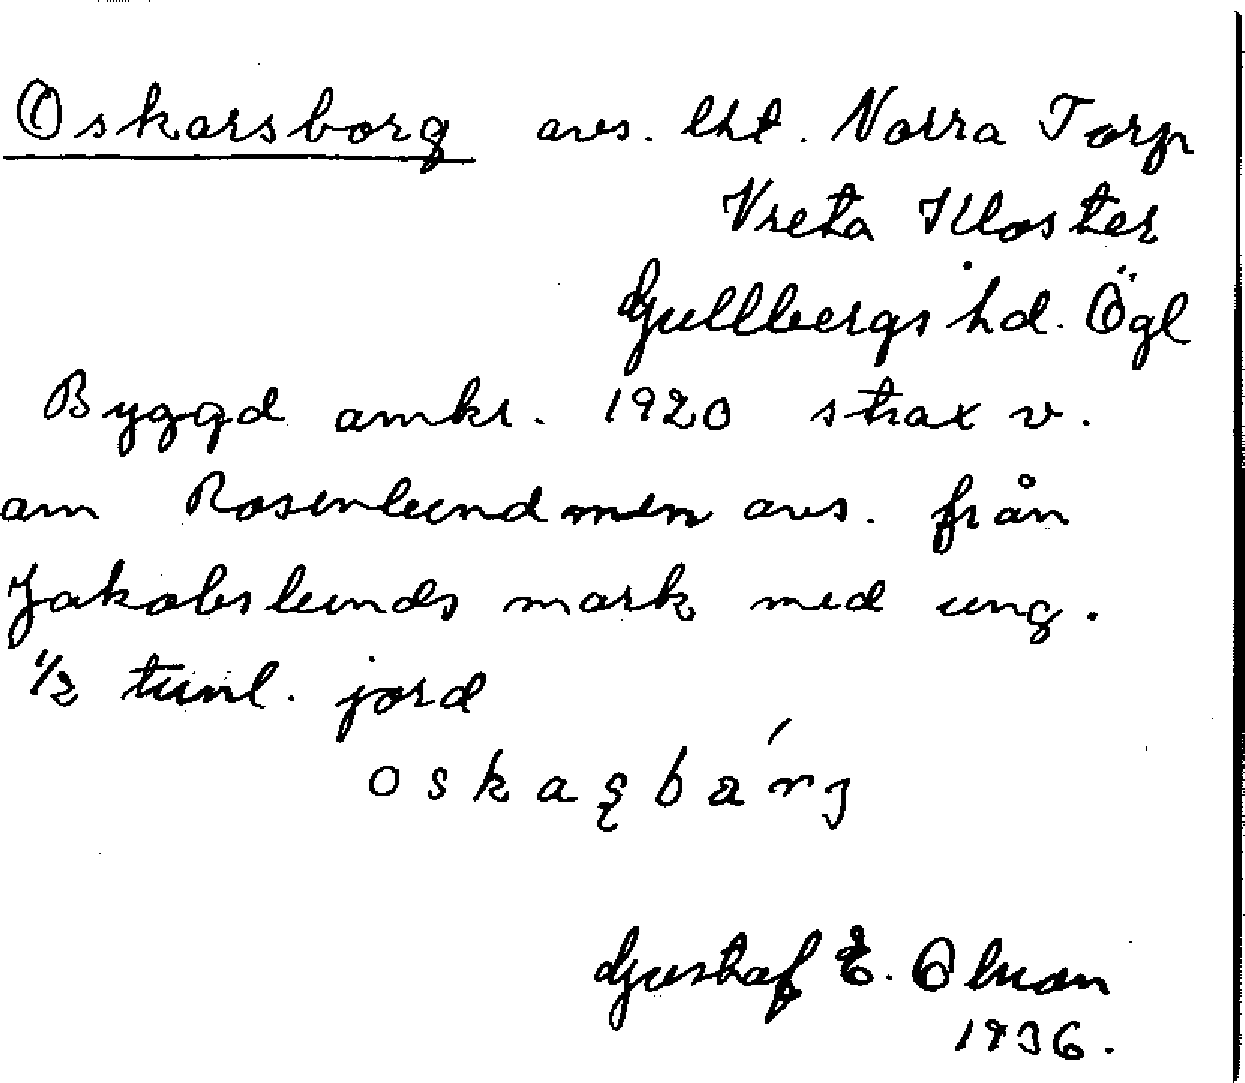 Oskarsborg avs. lht. Norra Torp
Vreta Kloster
Gullbergs hd. Ögl
Byggd omkr. 1920 strax v.
om Rosenlund men avs. från
Jakobslunds mark med ung.
1/2 tunl. jord
Gustaf E.
1936.